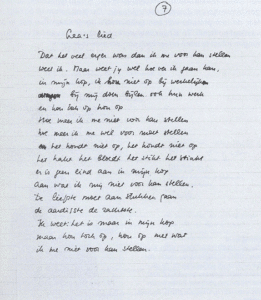 7
Lea's lied
Dat het veel erger was dan ik me voor kan stellen
weet ik. Maar weet jij wel hoe ver ik gaan kan,
in mijn kop, ik hou niet op bij werkelijk
bij mij doen bijlen ook hun werk
en hou toch op hou op
Hoe meer ik me niet voor kan stellen
hoe meer ik me wel voor moet stellen
het houdt niet op, het houdt niet op
het hakt het bloedt het stikt het stinkt
er is geen eind aan in mijn kop
aan wat ik mij niet voor kan stellen,
De liefste moet aan stukken gaan
de aardigste de zachtste.
Ik weet het is maar in mijn kop
maar hou toch op, hou op met wat
ik me niet voor kan stellen.